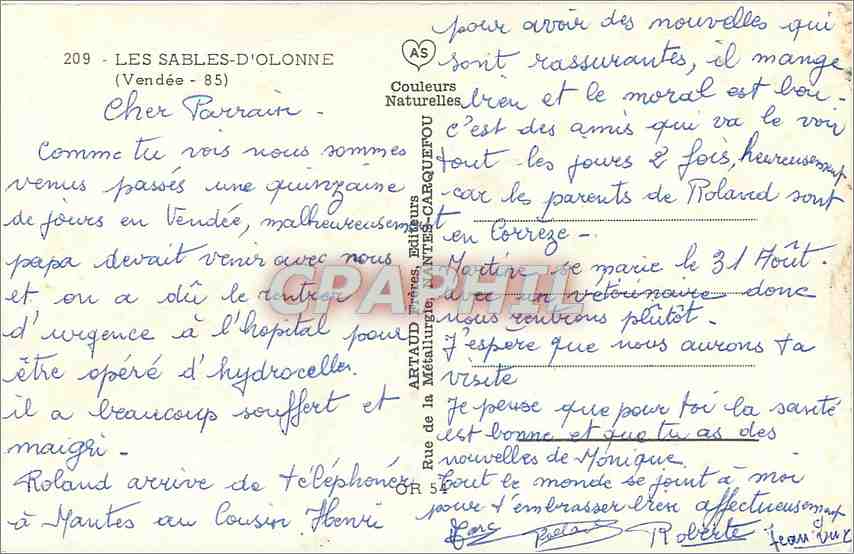 209 - LES SABLES-D'OLONNE
(Vendée - 85)
AS
Couleurs
Naturelles
ARTAUD Frères, Editeurs
Rue de la Métallurgie, NANTES-CARQUEFOU
OR 54
CPAPHIL
Cher Parrain -
Comme tu vois nous sommes
venus passés une quinzaine
de jours en Vendée, malheureusement
papa devait venir avec nous
et on a dû le rentrer
d'urgence à l'hopital pour
être opéré d'hydrocelles.
il a beaucoup souffert et
maigri -
Roland arrive de téléphoner
à Mantes au Cousin Henri
pour avoir des nouvelles qui
sont rassurantes, il mange
bien et le moral est bon -
c'est des amis qui va le voir
tout les jours 2 fois, heureusement
car les parents de Roland sont
en Corrèze -
Martine se marie le 31 Août -
avec un vétérinaire donc
nous rentrons plutôt -
J'espère que nous aurons ta
visite
Je pense que pour toi la santé
est bonne et que tu as des
nouvelles de Monique
tout le monde se joint à moi
pour t'embrasser bien affectueusement
Roland Roberte Jean Luc